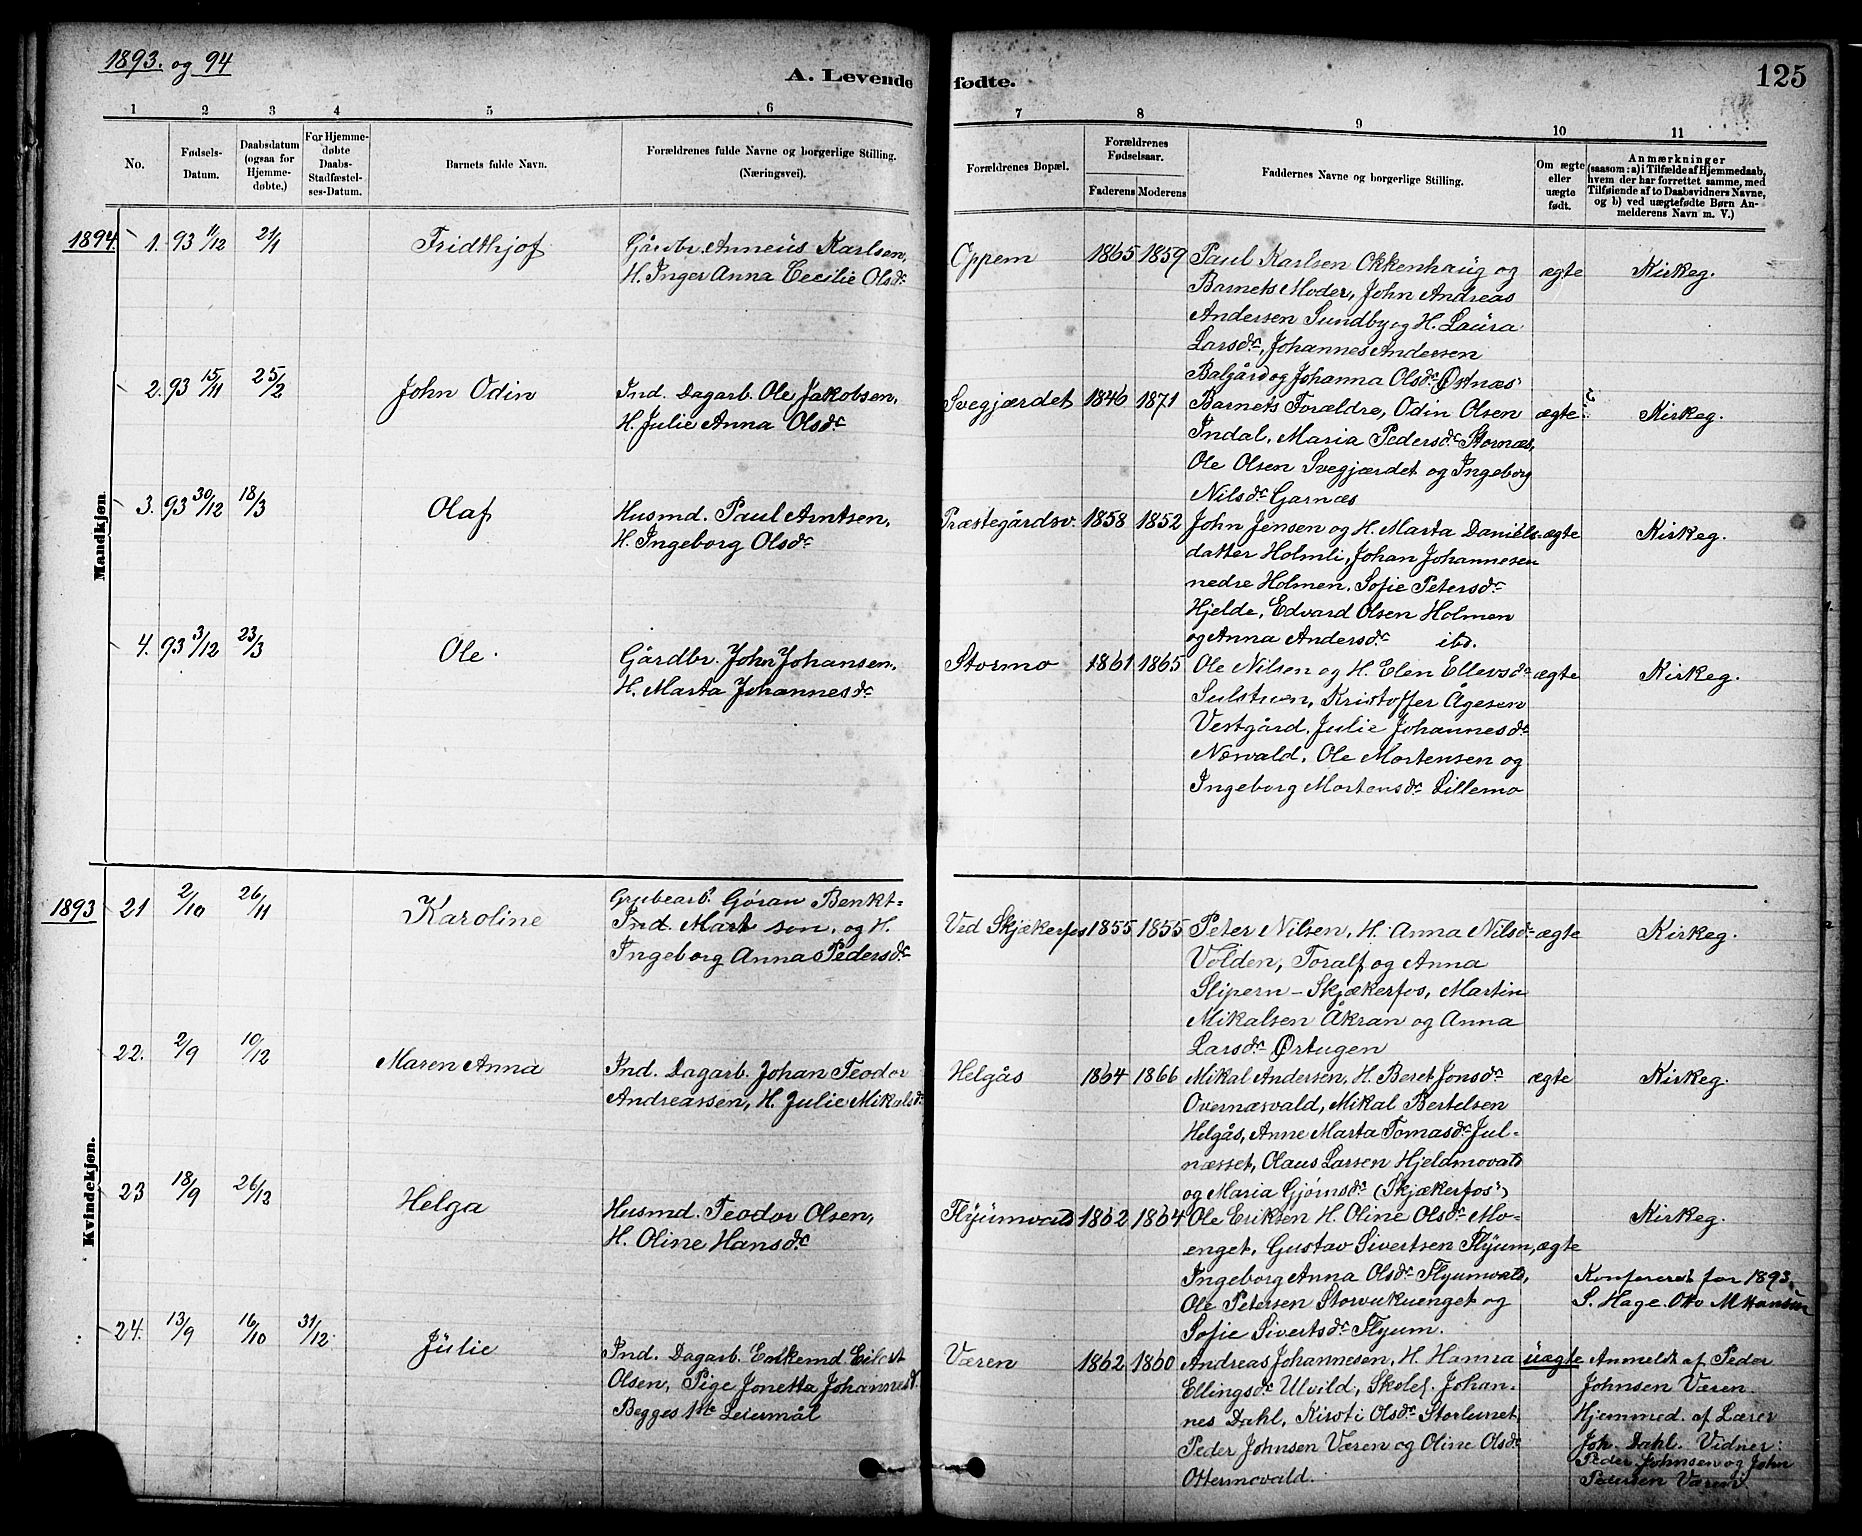 1893. og 94
A. Levende fødte. 125
1 2 3 4 5 6 7 8 9 10 11
No.
Fødsels-
Datum.
Daabsdatum
(ogsaa for
Hjemme-
døbte.)
For Hjemme-
døbte
Daabs-
Stadfæstel-
ses-Datum.
Barnets fulde Navn.
Forældrenes fulde Navne og borgerlige Stilling.
(Næringsvei).
Forældrenes Bopæl.
Forældrenes
Fødselsaar.
Faderens Moderens
Faddernes Navne og borgerlige Stilling.
Om ægte
eller
uægte
født.
Anmærkninger
(saasom: a) i Tilfælde af Hjemmedaab,
hvem der har forrettet samme, med
Tilføiende af to Daabsvidners Navne,
og b) ved uægtefødte Børn An-
melderens Navn m. V.)
Mandkjøn
1894. 1. 93 11/12 21/1 Fridthjof
Gårdbr. Anneus Karlsen,
H. Inger Anna Cecilie Olsdr
Oppem 1865 1859
Paul Karlsen Okkenhaug og
Barnets Moder, John Andreas
Andersen Sundby og H. Laura
Larsdr, Johannes Andersen
Balgård og Johanna Olsdr Østnæs
ægte Kirkeg.
2. 93 15/11 25/2 John Odin
Ind. Dagarb. Ole Jakobsen,
H. Julie Anna Olsdr
Svegjærdet 1846 1871
Barnets Forældre, Odin Olsen
Indal, Maria Pedersdr Stornæs,
Ole Olsen Svegjærdet og Ingeborg
Nilsdr Garnæs
ægte Kirkeg.
3. 93 30/12 18/3 Olaf
Husmd. Paul Arntsen,
H. Ingeborg Olsdr
Præstegårdsv. 1858 1852
John Jensen og H. Marta Daniels-
datter Holmli, Johan Johannesen
nedre Holmen, Sofie Petersdr
Hjelde, Edvard Olsen Holmen
og Anna Andersdr ibd.
ægte Kirkeg.
4. 93 3/12 23/3 Ole
Gårdbr. John Johansen,
H. Marta Johannesdr
Stormo 1861 1865
Ole Nilsen og H. Elen Ellevsdr
Sulstuen, Kristoffer Ågesen
Vestgård, Julie Johannesdr
Næsvald, Ole Mortensen og
Ingeborg Mortensdr Lillemo
ægte Kirkeg.
Kvindekjøn.
1893 21 2/10 26/11 Karoline
Grubearb. Gøran Benkt-
Ind. son, og H.
Ingeborg Anna Pedersdr
Ved Skjækerfos 1855 1855
Peter Nilsen, H. Anna Nilsdr
Volden, Toralf og Anna
Slipern-Skjækerfos, Martin
Mikalsen Åkran og Anna
Larsdr Ørtugen
ægte Kirkeg.
22. 2/9 10/12 Maren Anna
Ind. Dagarb. Johan Teodor
Andreassen, H. Julie Mikalsdr
Helgås 1864 1866
Mikal Andersen, H. Beret Jonsdr
Overnæsvald, Mikal Bertelsen
Helgås, Anne Marta Tomasdr Jul-
næsset, Olaus Larsen Hjeldmovald
og Maria Gjørnsdr (Skjækerfos)
ægte Kirkeg.
23 18/9 26/13 Helga
Husmd. Teodor Olsen,
H. Oline Hansdr
Flyumvald 1862 1864
Ole Eriksen H. Oline Olsdr Mo-
enget, Gustav Sivertsen Flyum,
Ingeborg Anna Olsdr Flyumvald,
Ole Petersen Storvukuenget og
Sofie Sivertsdr Flyum.
ægte Kirkeg.
Konfereret for 1893.
S. Hage. Otto M Hansen
24. 13/9 16/10 31/12 Julie
Ind. Dagarb. Enkemd Eilert
Olsen, Pige Jonetta Johannesd.
Begges 1ste Leiermål
Væren 1862 1860
Andreas Johannesen, H. Hanna
Ellingsdr Ulvild, Skolel. Johan-
nes Dahl, Kirsti Olsdr Storlunet
Peder Johnsen Væren og Oline Olsdr
Ottermovald.
uægte
Anmeldt af Peder
Johnsen Væren.
Hjemmed. af Lærer
Joh. Dahl. Vidner:
Peder Johnsen og John
Pedersen Væren